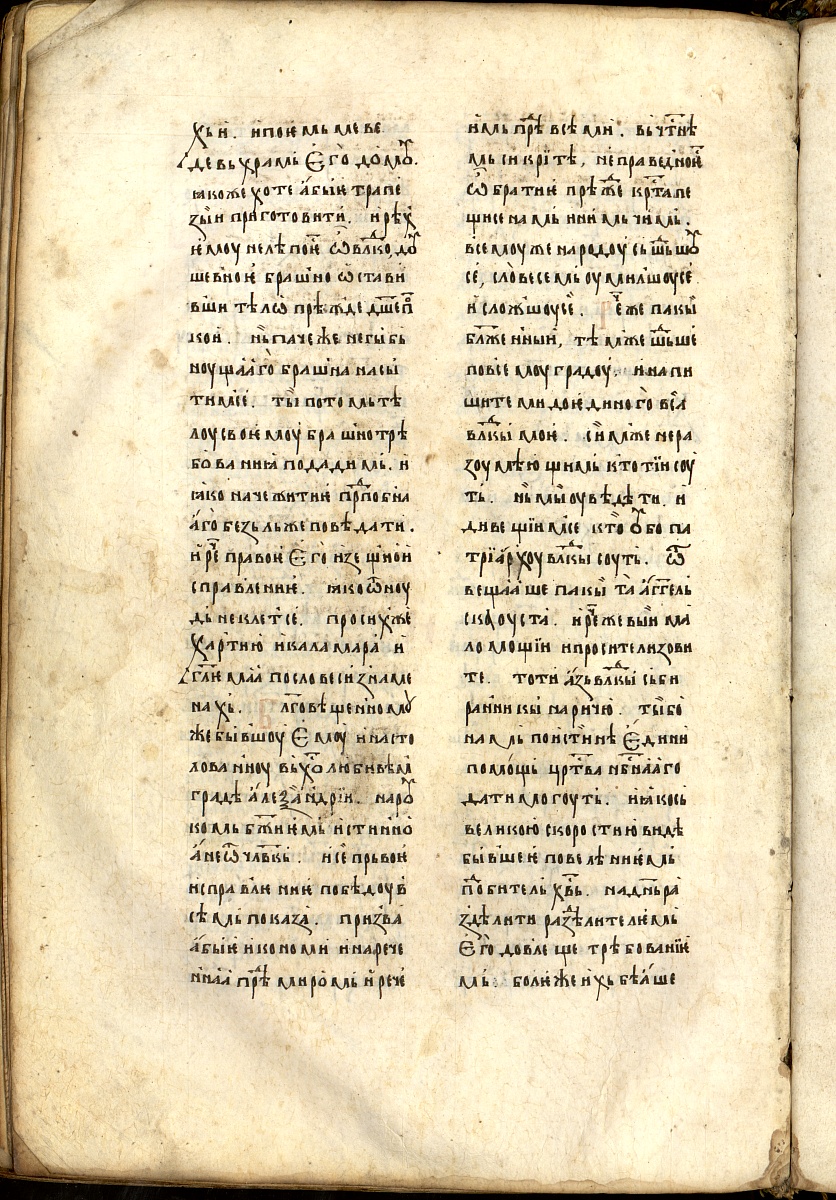 хьи. и поѥмь ме ве
де вь храмь Ѥго домꙋ.
ꙗкоже хоте абиѥ трапе
зѹи приготовити. и рѣх
ѥмоу не лѣпоѥ ѿ влⷣко, дꙋ
шевноѥ брашно ѡстави
вши тѣлѡ прѣжде дш҃еп
кои. нь паче же негыбь
ноущааго брашна насы
тимсе. ты потомь тѣ
лоу своѥмоу брашно трѣ
бованиꙗ подадимь. и
ꙗко наче житиѥ прⷣпобна
аго безь льже повѣдати.
и рⷱе правоѥ Ѥго изещноѥ
справлениѥ. ꙗко ѿноу
дь не клетсе. просих же
хартию и каламара и
гл҃имаа по словеси знаме
нахь. Блг҃овѣщенномꙋ
же бывшоу Ѥмоу и насто
лованноу вь хⷭ҇олюбивѣм
градѣ алеѯандрїи. нарꙋ
комь бж҃иѥмь истинно
а не ѿ чл҃вкь. и се прьвоѥ
исправлѥниѥ побѣдоу в
сѣмь показа. призва
абыѥ икономи и нарече
ннаа прⷣѣ миромь и рече
имь прⷣѣ всѣми. вь чтⷭ҇нѣ
мь сикритѣ, неправедноѥ
ѡбратиѥ прѣжⷣе крⷭ҇та пе
щисе намь инимь чимь.
всемоу же народоу сьшьшꙋ
се, словесемь оумилшоусе
и сложшоусе. Еже пакы
блаженный, тѣмже шьше
по всемоу градоу. и напи
щите ми до ѥдиного все
влⷣкы моѥ. симже нера
зоумѣющимь кто тїи соу
ть. нь мы оувѣдѣти. и
дивещиимсе кто ꙋбо па
трїархоу влⷣкы соуть. ѿ
вещааше пакы та агг҃ель
скаꙗ оуста. и рⷱеже вьи ма
ломощїи и просители зови
те. то ти азь влⷣкы сьби
ранникы наричю. ты бо
намь поистинѣ Ѥдини
помощь црⷭ҇тва нбⷭ҇наго
дати могоуть. и ꙗко сь
великою скоростию видѣ
бывшеѥ повелѣниѥмь
пⷣобитель хв҃ь. на дн҃ь ра
здѣлити раздѣлителѥмь
Ѥго довлеще трѣбованїе
мь. болѥ же ихь бѣаше